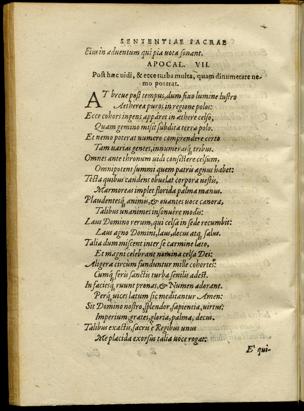 SENTENTIAE SACRAE
Eius in aduentum qui pia uota sonant.
APOCAL. VII.
Post hæc uidi, & ecce turba multa, quam dinumerare ne-
mo poterat.
AT breue post tempus, dum fixo lumine lustro
Aetherea puros in regione polos:
Ecce cohors ingens apparet in æthere celso,
Quam gemino misit subdita terra polo.
Et nemo poterat numero comprendere certo
Tam uarias gentes, innumerasq; tribus.
Omnes ante thronum uidi consistere celsum,
Omnipotens summi quem patris agnus habet:
Tecta quibus candens obuelat corpora uestis,
Marmoreas implet florida palma manus.
Plaudentesq; animis, & ouantes uoce canora,
Talibus unanimes insonuere modis:
Laus Domino rerum, qui celsa in sede recumbit:
Laus agno Domini, laus, decus atq; salus.
Talia dum miscent inter se carmine lato,
Et magni celebrant nomina celsa Dei:
Aligera circum funduntur mille cohortes:
Cumq; feris sanctis turba senilis adest.
In faciesq; ruunt pronas, & Numen adorant.
Perq; uices latum sic meditantur Amen:
Sit Domino nostro, splendor, sapientia, uirtus:
Imperium, grates, gloria, palma, decus.
Talibus exactis, sacris e Regibus unus
Me placida exorsus talia uoce rogat:
E' qui-